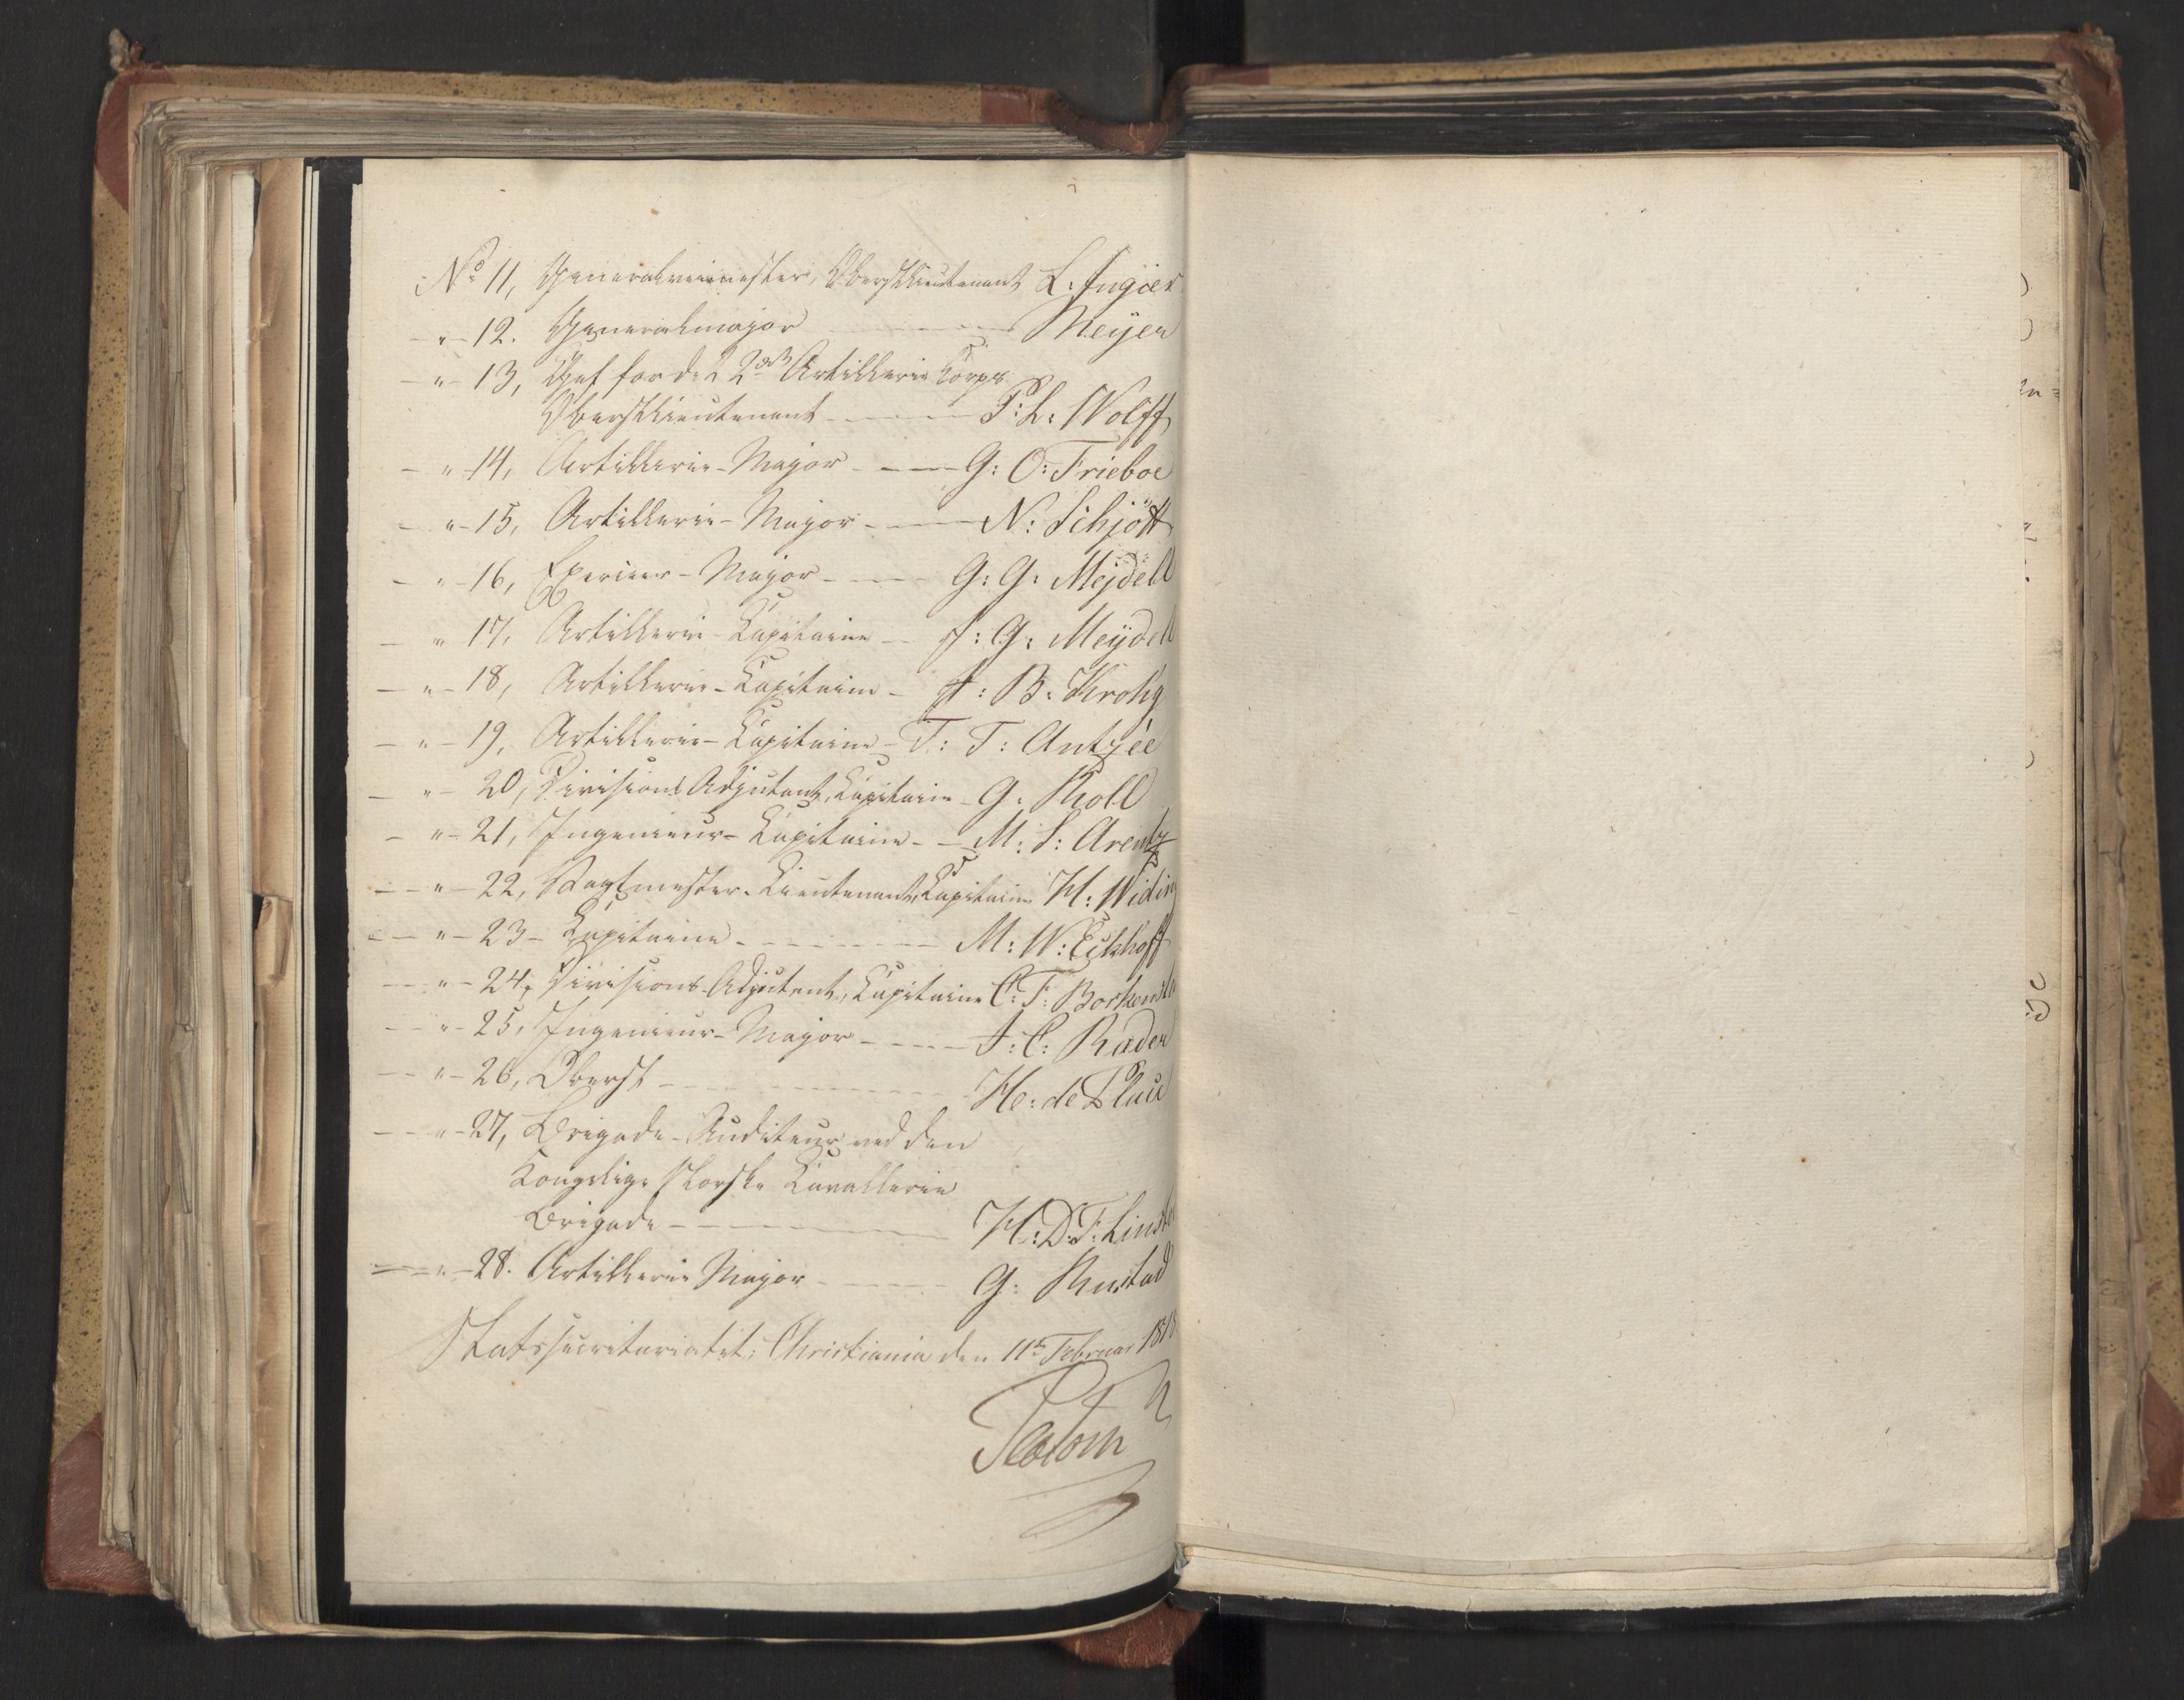 No 11, Generalveimester, Oberstlieutenant L: Ingier
- " - 12. Generalmajor - - - - Meÿer
- " - 13, Chef for det 2det Artillerie Korps
Oberstlieutenant - - - - P: L: Wolff
- " - 14, Artillerie-Major - - - G: O: Frieboe
- " - 15, Artillerie-Major - - - N: Schjött
- " - 16, Exerceer-Major - - - G: G: Mejdell
- " 17, Artillerie-Kapitaine - - J: G: Meÿdell
- " - 18, Artillerie-Kapitaine - A: B: Krohg
- " - 19, Artillerie-Kapitaine - T: T: Antzée
- " - 20, Divisions Adjutant, Kapitaine - G: Koll
- " - 21, Ingenieur-Kapitaine - - M: S: Arentz
- - " - 22, Vagtmester-Lieutenant, Kapitaine H: Widin
- - " - 23 - Kapitaine - - - - M: W: Eckhoff
- - " - 24, Divisions-Adjutant, Kapitaine C: F: Borkenste
- - " - 25, Ingenieur-Major - - - - J: C: Ræder
- - " - 26, Oberst - - - - He: de Seue
- - " - 27, Brigade-Auditeur ved den
Kongelige Norske Kavallerie
Brigade - - - - H: D: F: Linste
- - " - 28. Artillerie Major - - - G: Rustad
Statssecretariatet, Christiania den 11te Februar 1818
Holom